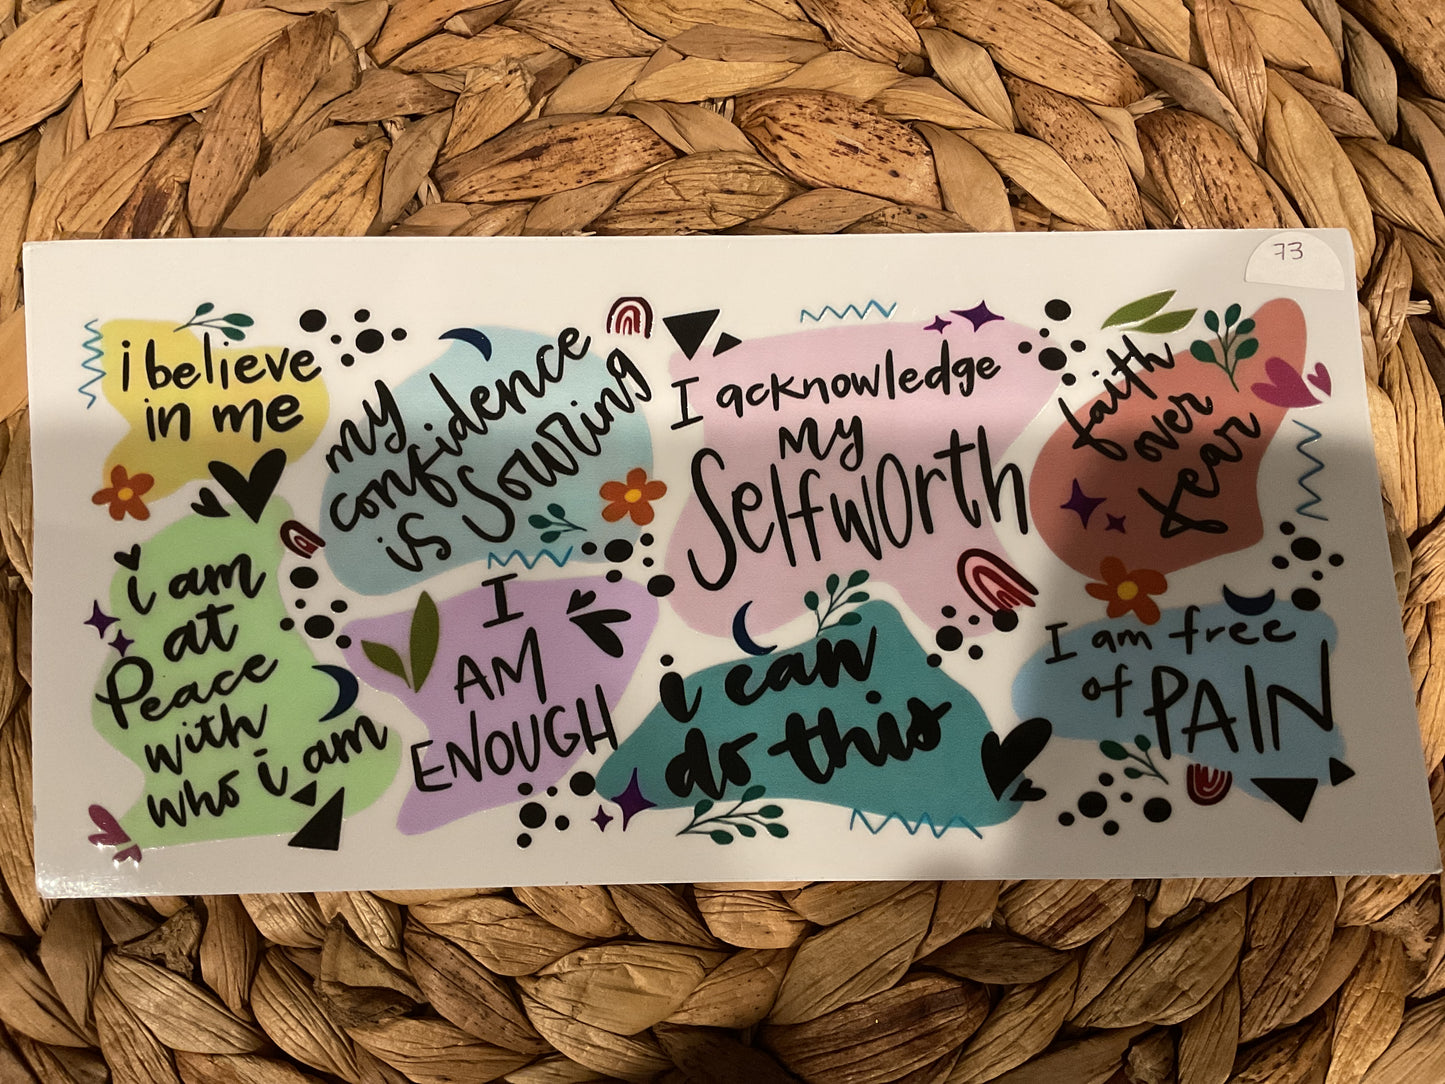 73
i believe
in me
my
confidence
is Sowring
I acknowledge
my
Selfworth
faith
over
fear
i am
at
Peace
with
who i am
I
AM
ENOUGH
i can
do this
I am free
of PAIN